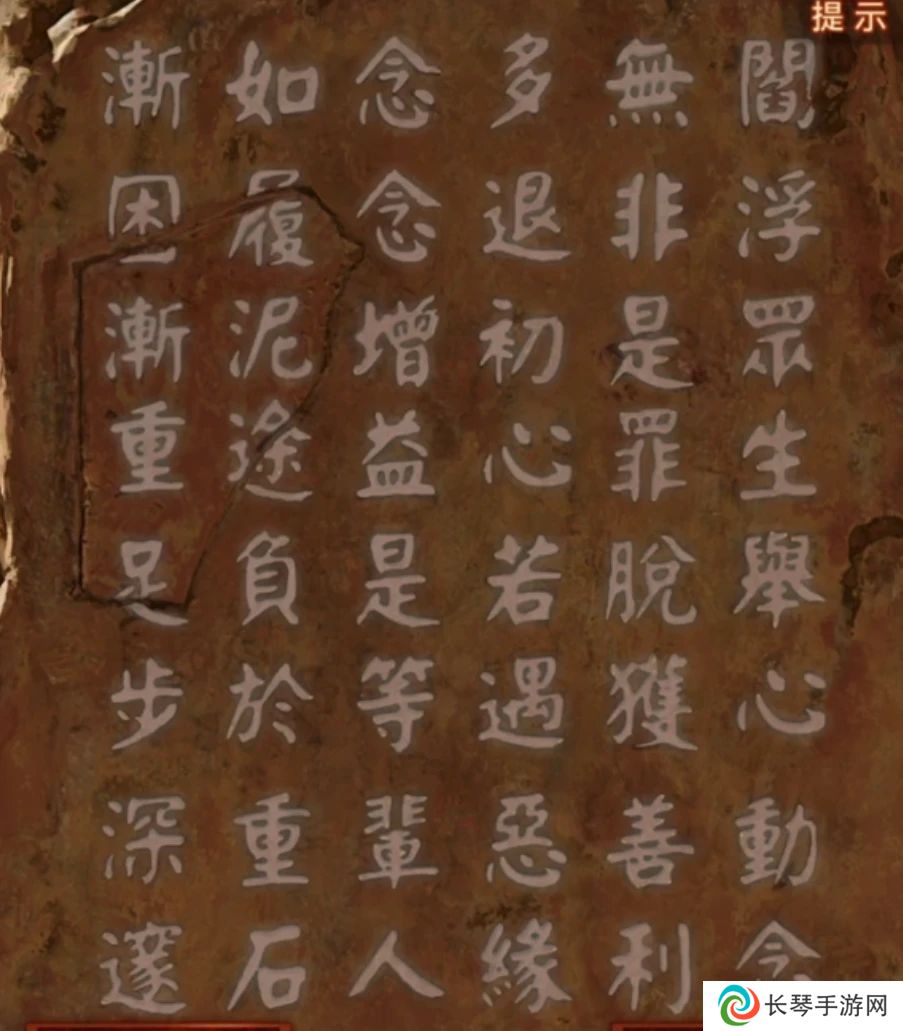 提示
閻浮眾生舉心動念
無非是罪脫獲善利
多退初心若遇惡緣
念念增益是等輩人
如履泥途負於重石
漸困漸重足步深邃
长琴手游网